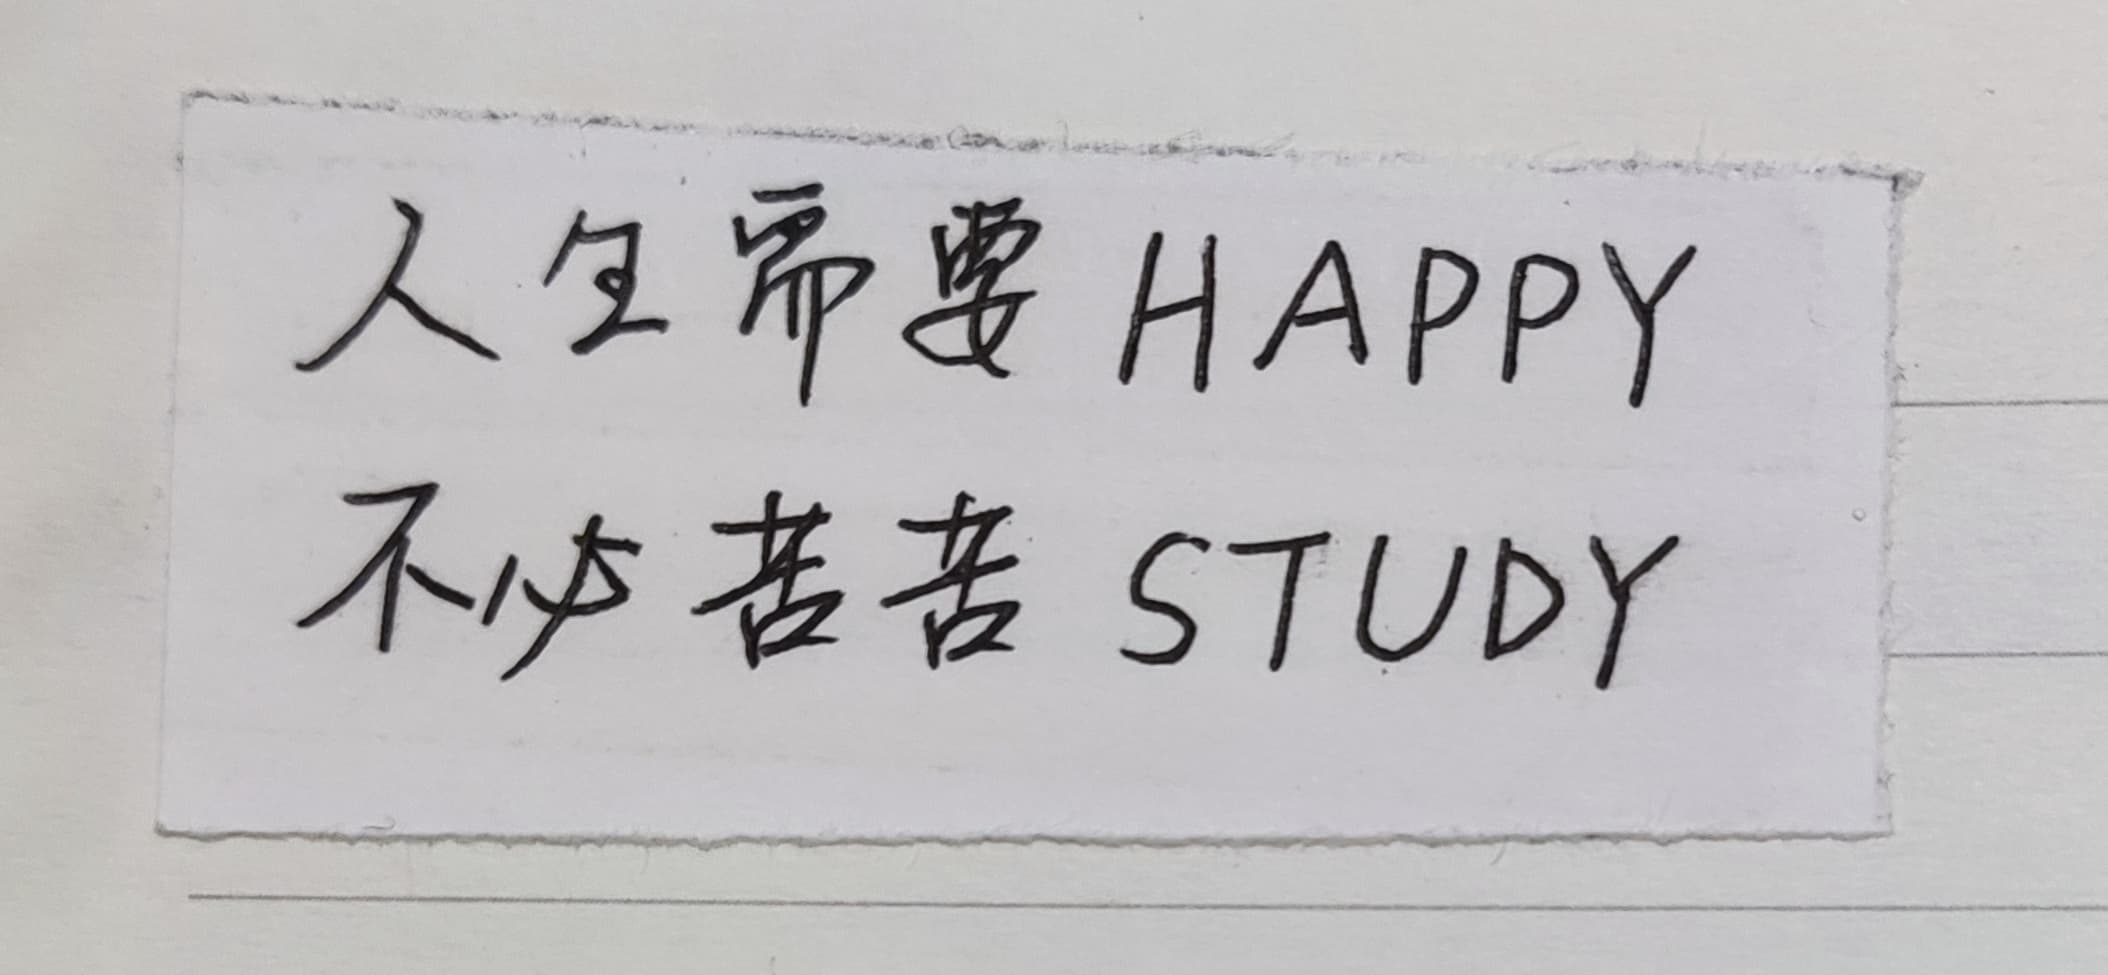 人生需要 HAPPY
不必苦苦 STUDY